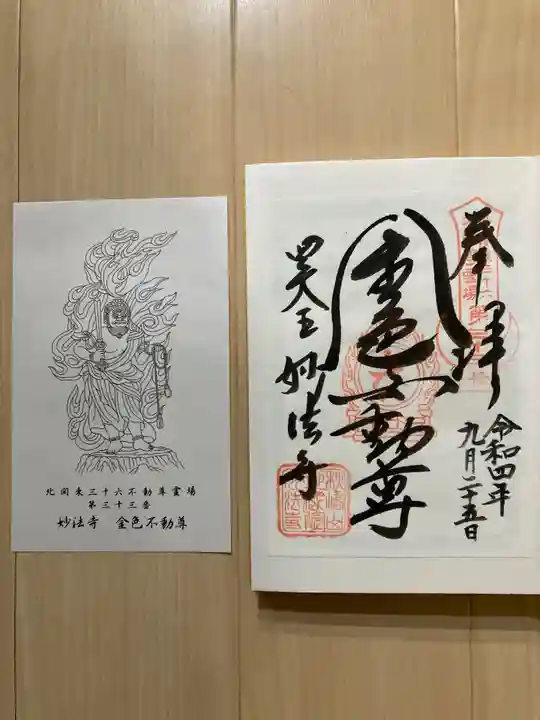 北関東三十六不動尊霊場
第三十三番
妙法寺　金色不動尊
奉拝
令和四年
九月二十五日
金色不動尊
妙法寺